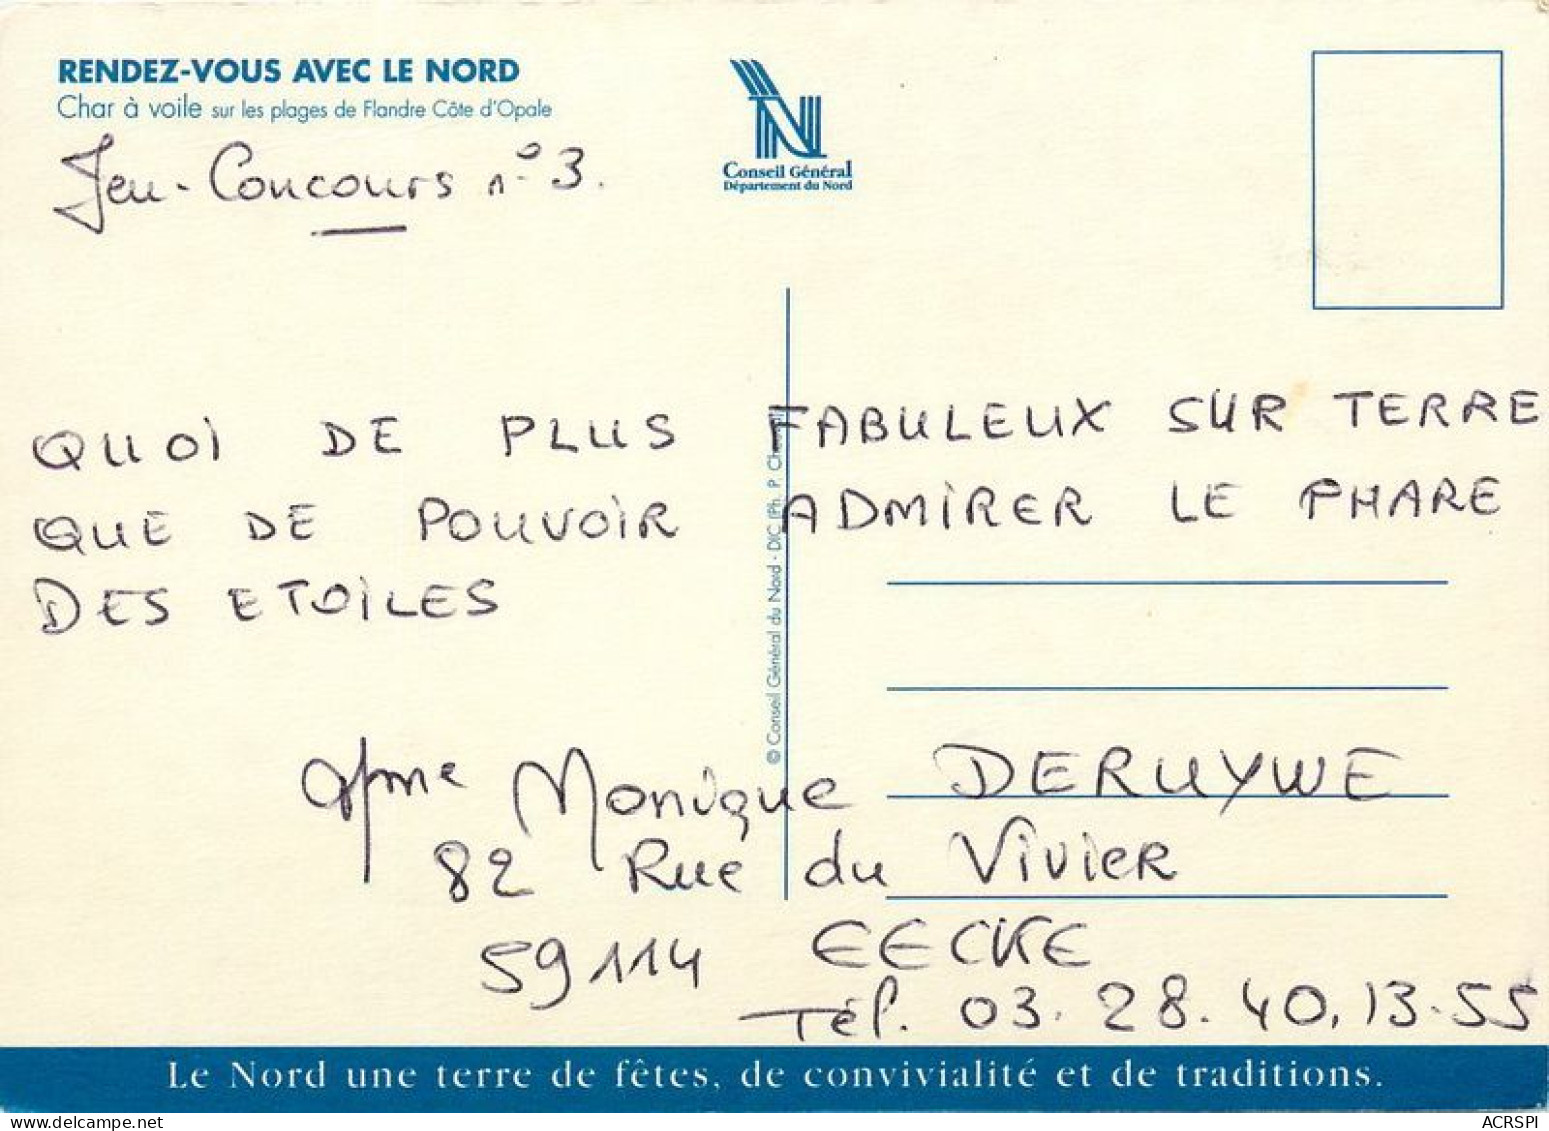 RENDEZ-VOUS AVEC LE NORD
Char à voile sur les plages de Flandre Côte d'Opale
Conseil Général
Département du Nord
Jeu-Concours n° 3.
QUOI DE PLUS FABULEUX SUR TERRE
QUE DE POUVOIR ADMIRER LE PHARE
DES ETOILES
© Conseil Général du Nord - DIC (Ph. P.
Mme Monique DERUYWE
82 Rue du Vivier
59114 EECKE
Tél. 03. 28. 40. 13. 55
Le Nord une terre de fêtes, de convivialité et de traditions.
ACRSPI